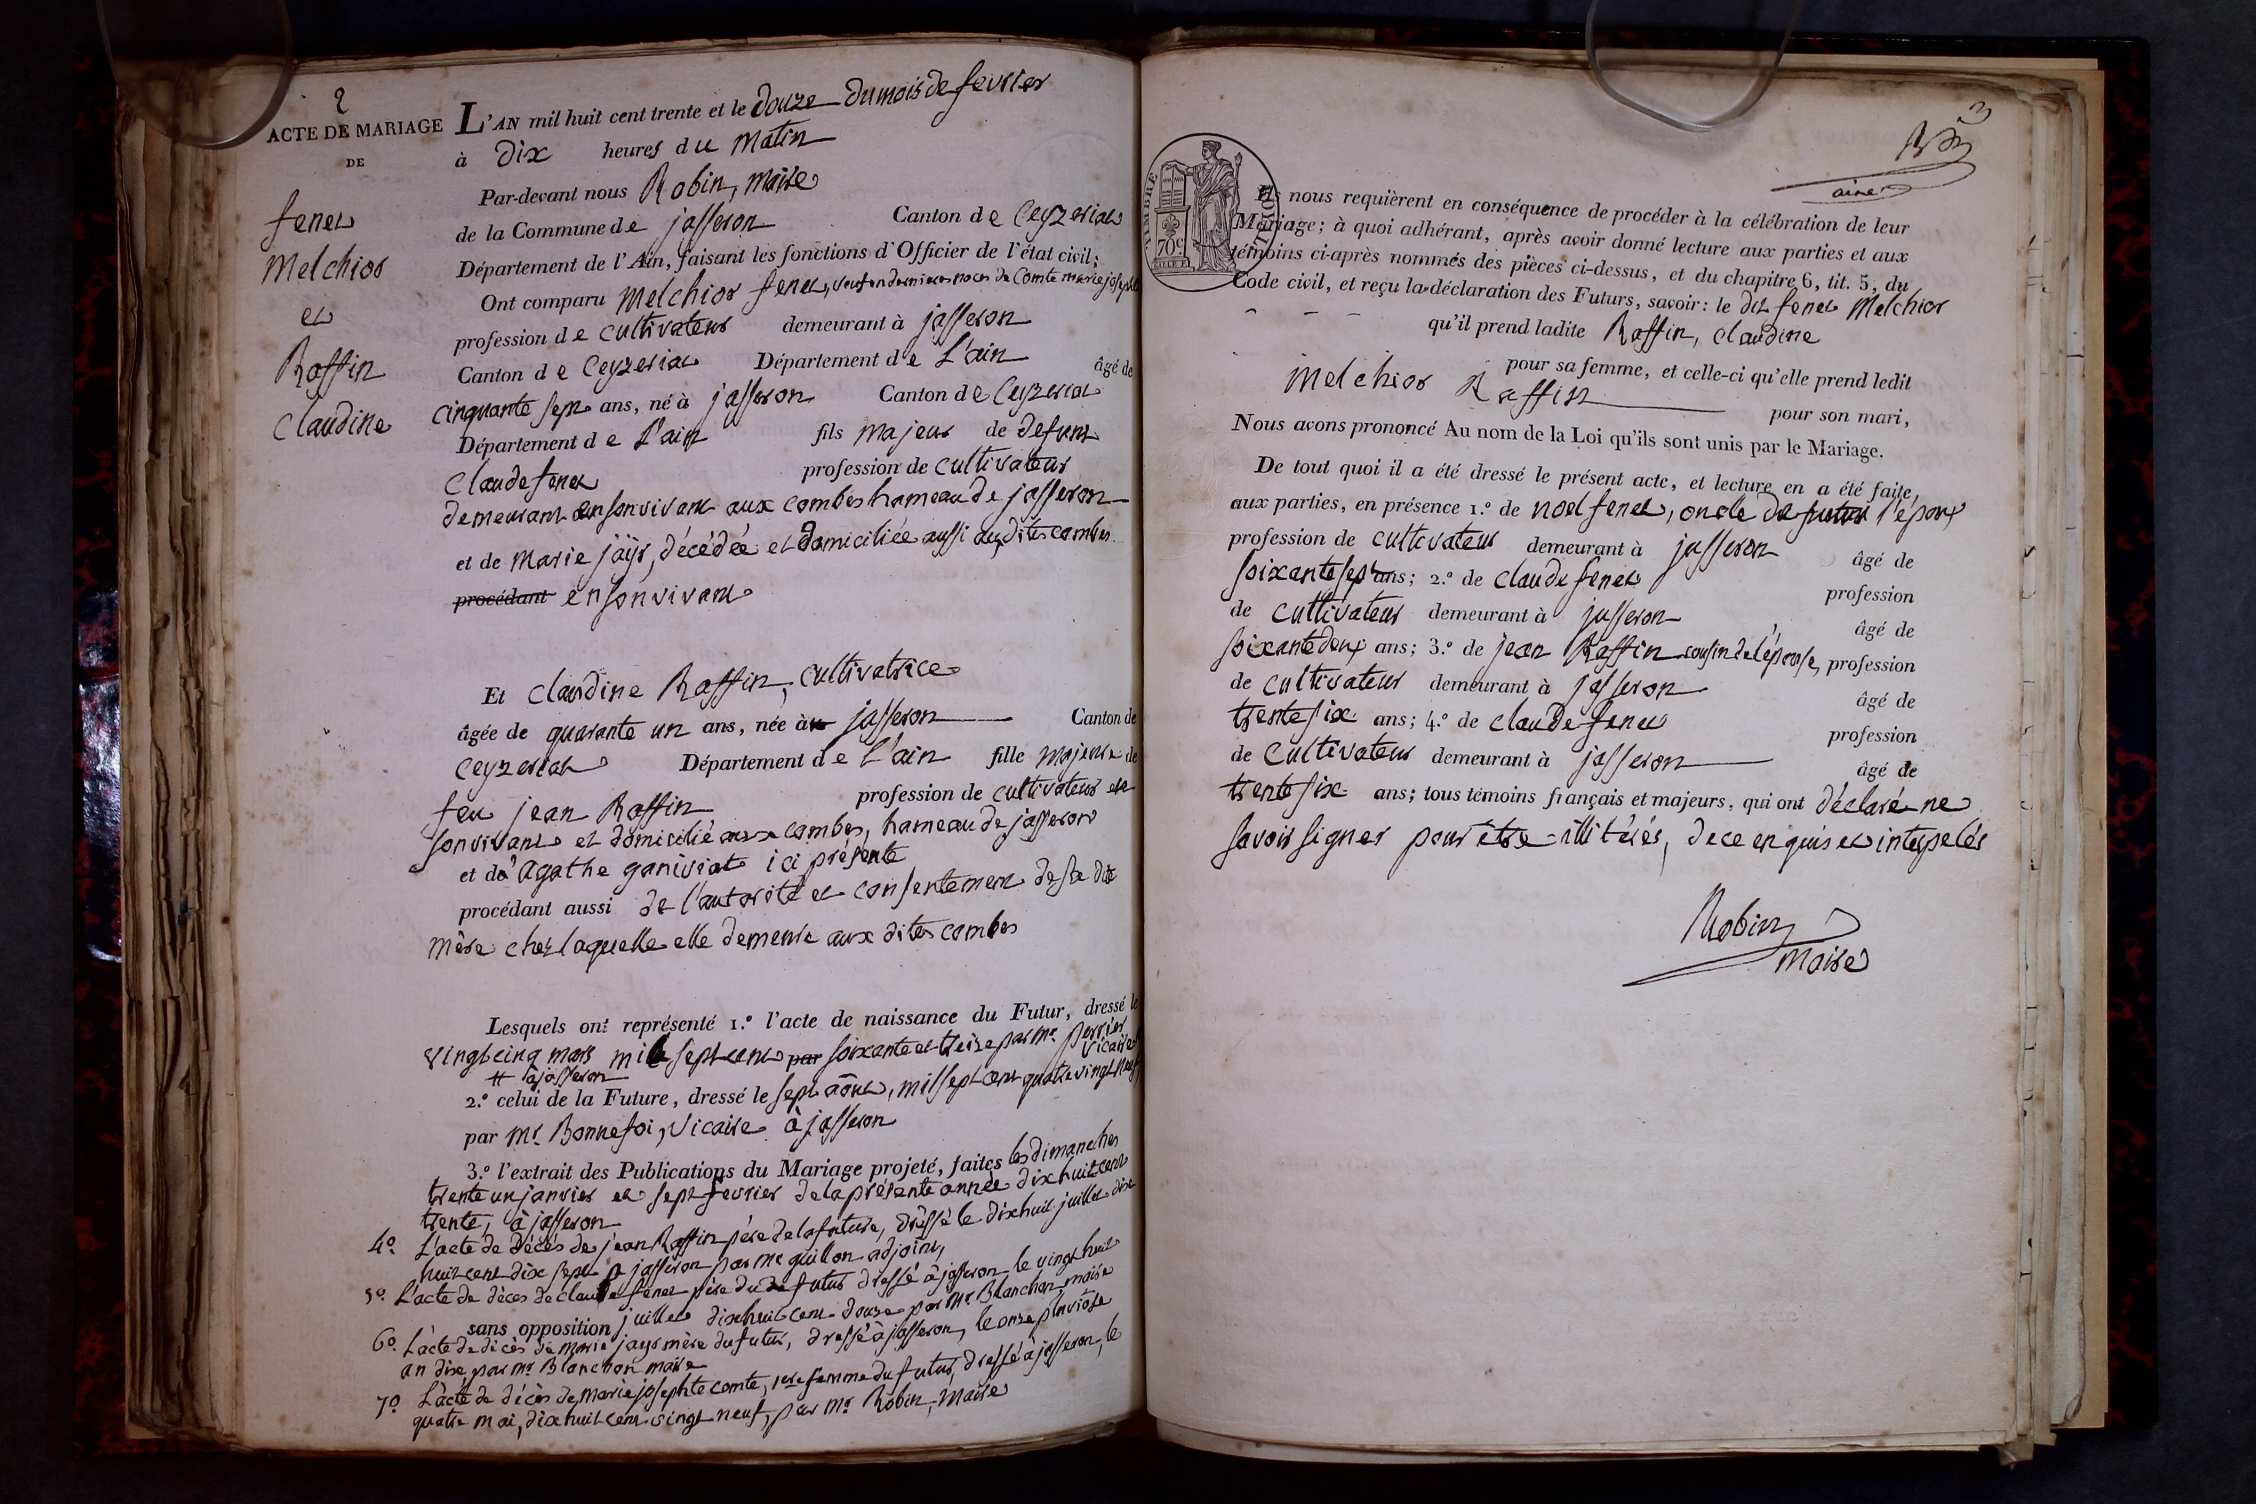 2
ACTE DE MARIAGE
DE
fenet
Melchior
et
Raffin
Claudine
L'AN mil huit cent trente et le douze du mois de fevrier
à Dix heures du Matin
Par-devant nous Robin, Maire
de la Commune de jasseron Canton de Ceyzeriat
Département de l'Ain, faisant les fonctions d'Officier de l'état civil;
Ont comparu Melchior fenet, veuf en dernieres noces de Comte marie josephte
profession de cultivateur demeurant à jasseron
Canton de Ceyzeriat Département de L'ain âgé de
cinquante sept ans, né à jasseron Canton de Ceyzeriat
Département de L'ain fils Majeur de defunt
Claude fenet profession de cultivateur
demeurant en son vivant aux combes hameau de jasseron
et de Marie jaÿr, décédée et domiciliée aussi aux dites combes
procédant en son vivant
Et Claudine Raffin, cultivatrice
âgée de quarante un ans, née à jasseron Canton de
Ceyzeriat Département de L'ain fille majeure de
feu jean Raffin profession de cultivateur en
son vivant et domicilié aux combes, hameau de jasseron
et de Agathe ganiviat ici présente
procédant aussi de l'autorité et consentement de sa dite
mère chez laquelle elle demeure aux dites combes
Lesquels ont représenté 1.º l'acte de naissance du Futur, dressé le
vingt cinq mars mil sept cent par soixante et treize par Mr. perrier
vicaire
# à jasseron
2.º celui de la Future, dressé le sept aôut, mil sept cent quatre vingt neuf
par Mr. Bonnefoi, Vicaire à jasseron
3.º l'extrait des Publications du Mariage projeté, faites les dimanches
trente un janvier et sept fevrier de la présente année dix huit cent
trente, à jasseron
4º. L'acte de décés de jean Raffin père de la future, dréssé le dix huit juillet dix
huit cent dix sept à jasseron par Mr guillon adjoint,
5º. L'acte de déces de Claude fenet père du futur dressé à jasseron le vingt huit
sans opposition juillet dix huit cent douze par Mr. Blanchon maire
6º. L'acte de décès de Marie jayr mère du futur, dressé à jasseron, le onze pluviôse
an dix par Mr Blanchon maire
7º. L'acte de décès de Marie josephte comte, 1ere femme du futur, dressé à jasseron, le
quatre mai, dix huit cent vingt neuf, par Mr Robin, Maire
3
TIMBRE ROYAL
70c
Ils nous requièrent en conséquence de procéder à la célébration de leur
Mariage; à quoi adhérant, après avoir donné lecture aux parties et aux
témoins ci-après nommés des pièces ci-dessus, et du chapitre 6, tit. 5, du
Code civil, et reçu la déclaration des Futurs, savoir: le dit fenet Melchior
qu'il prend ladite Raffin, claudine
pour sa femme, et celle-ci qu'elle prend ledit
Melchior Raffin pour son mari,
Nous avons prononcé Au nom de la Loi qu'ils sont unis par le Mariage.
De tout quoi il a été dressé le présent acte, et lecture en a été faite,
aux parties, en présence 1.º de noel fenet, oncle de futur l'époux
profession de cultivateur demeurant à jasseron âgé de
soixante sept ans; 2.º de claude fenet profession
de cultivateur demeurant à jasseron âgé de
soixante deux ans; 3.º de jean Raffin cousin de l'épouse, profession
de cultivateur demeurant à jasseron âgé de
trente six ans; 4.º de claude fenet profession
de Cultivateur demeurant à jasseron âgé de
trente six ans; tous témoins français et majeurs, qui ont déclaré ne
savoir signer pour être illitérés, de ce enquis et interpelés
Robin
Maire